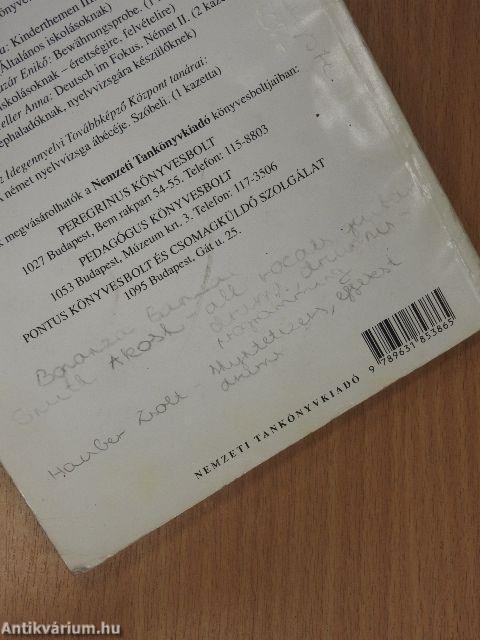 a: Kinderthemen II.
Általános iskolásoknak)
zár Enikő: Bewährungsprobe. (1
iskolásoknak – érettségire, felvételire)
eller Anna: Deutsch im Fokus. Német II. (2 kazetta)
ephaladóknak, nyelvvizsgára készülőknek)
z Idegennyelvi Továbbképző Központ tanárai:
A német nyelvvizsga ábécéje. Szóbeli. (1 kazetta)
k megvásárolhatók a Nemzeti Tankönyvkiadó könyvesboltjaiban:
PEREGRINUS KÖNYVESBOLT
1027 Budapest, Bem rakpart 54-55. Telefon: 115-8803
PEDAGÓGUS KÖNYVESBOLT
1053 Budapest, Múzeum krt. 3. Telefon: 117-3506
PONTUS KÖNYVESBOLT ÉS CSOMAGKÜLDŐ SZOLGÁLAT
1095 Budapest, Gát u. 25.
Bonanza Banzai
Ákos - all vocals,
programming
Hauber Zsolt - effekt
drums
9 789631 853865
NEMZETI TANKÖNYVKIADÓ
Antikvárium.hu